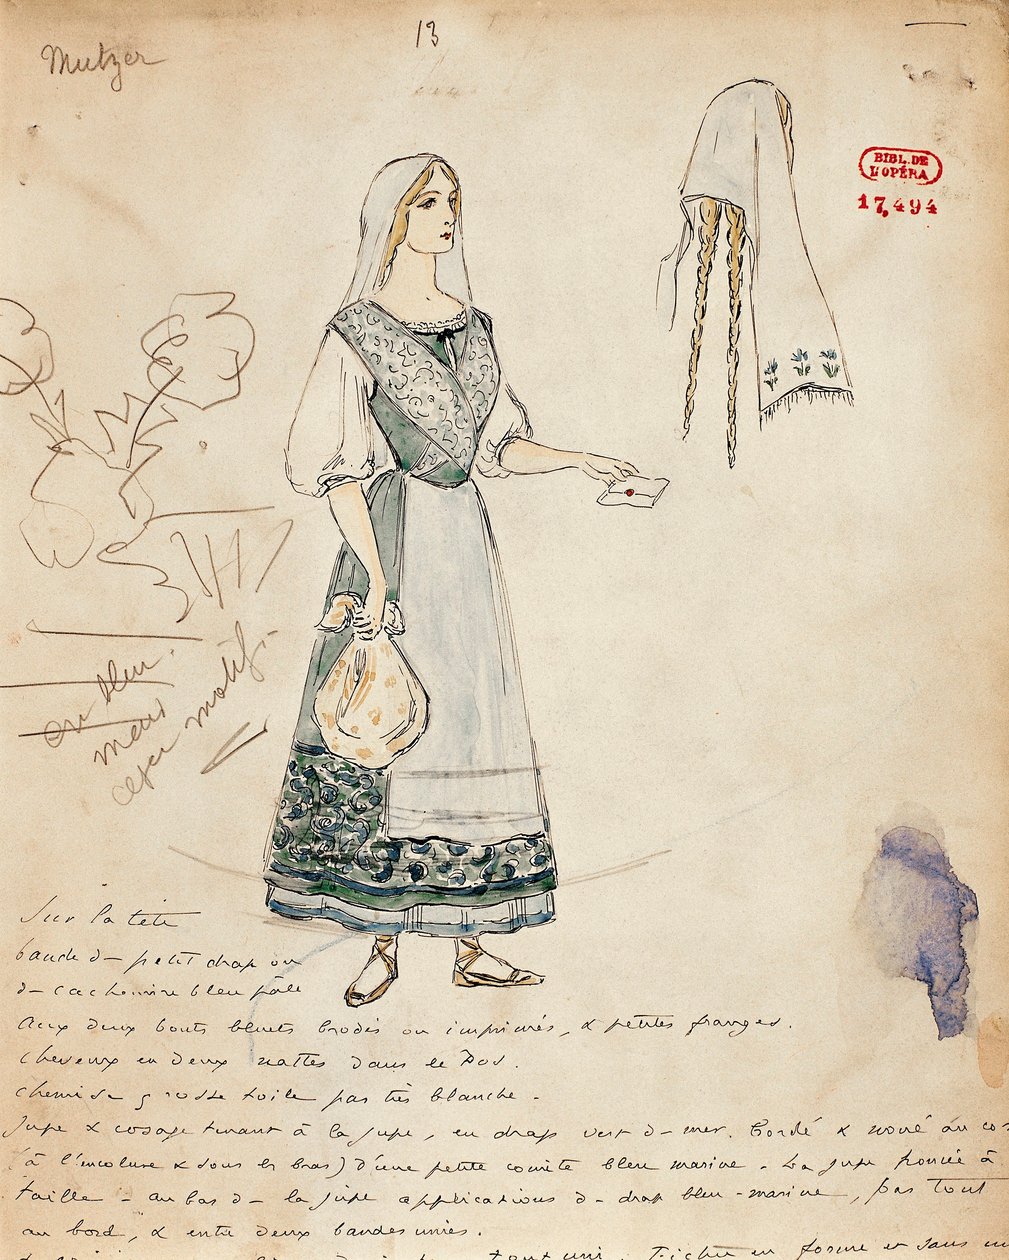 13
Mutzer
BIBL. DE
L'OPÉRA
17,494
en bleu.
mais
motif.
Sur la tête
bande d– petit drap ou
d– cachemire bleu pâle
Aux deux bouts bluets brodés ou imprimés, & petites franges.
cheveux en deux nattes dans le Dos.
chemise grosse toile pas très blanche.
Jupe & cosage tenant à la jupe, en drap vert d– mer. Bordé & noué au co
(à l'encolure & sous les bras) d'une petite comète bleu marine – La jupe froncée à
taille – au bas d– la jupe applications d– drap bleu-marine, pas tout
au bord, & entre deux bandes unies.
tout uni. Fichu en forme et sans